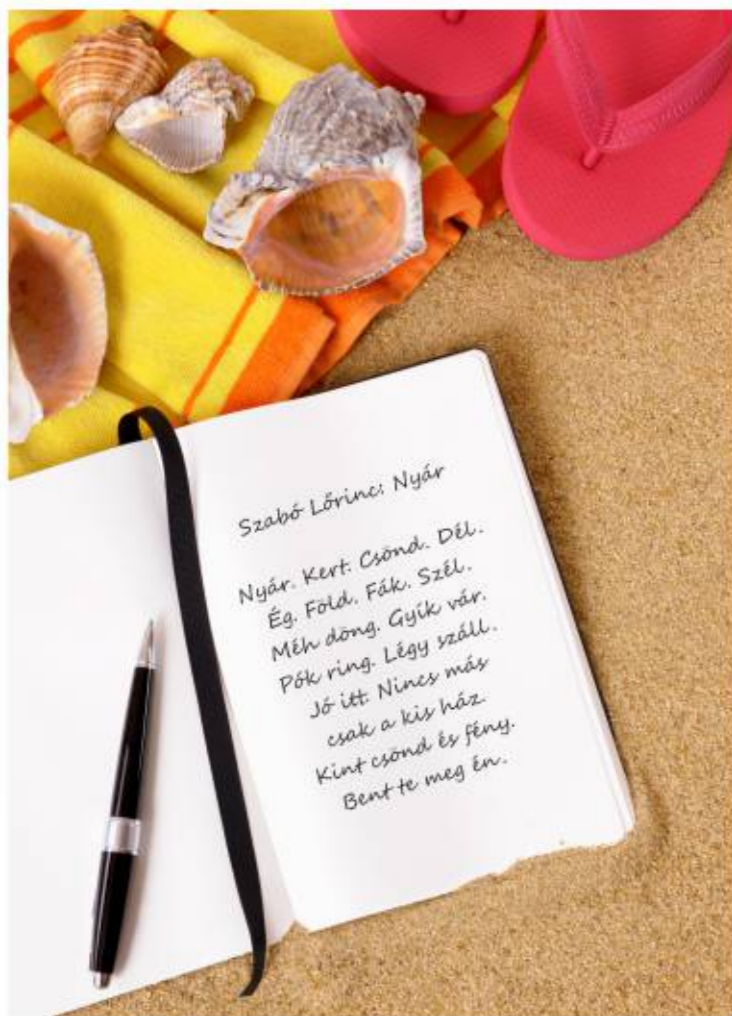 Szabó Lőrinc: Nyár
Nyár. Kert. Csönd. Dél.
Ég. Föld. Fák. Szél.
Méh döng. Gyík vár.
Pók ring. Légy száll.
Jó itt. Nincs más
csak a kis ház.
Kint csönd és fény.
Bent te meg én.